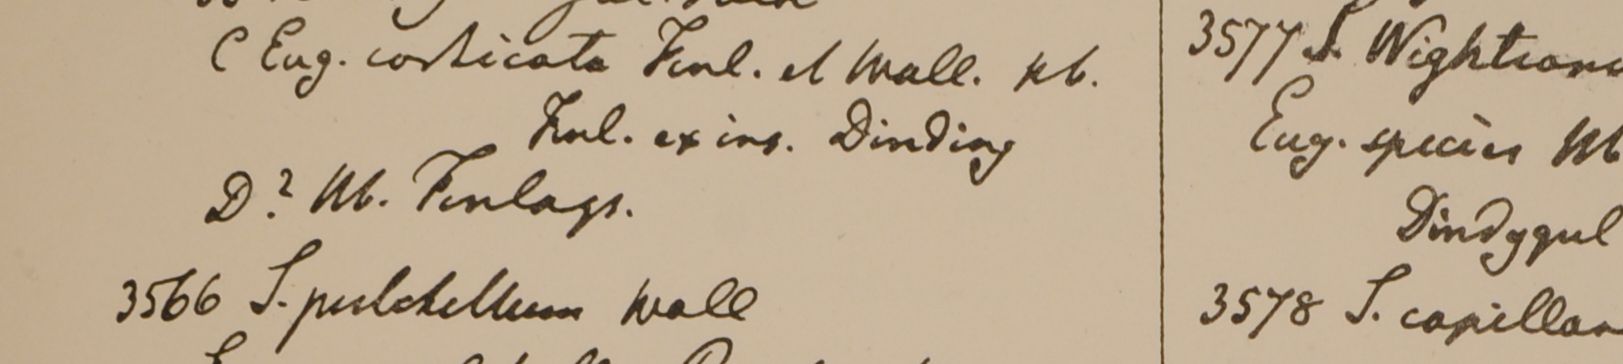 C Eug. corticata Finl. et Wall. Hb.
Finl. ex ins. Dinding
D? Hb. Finlays.
3566 S. pulchellum Wall
3577 S. Wightian
Eug. species Hb
Dindygul
3578 S. capillar